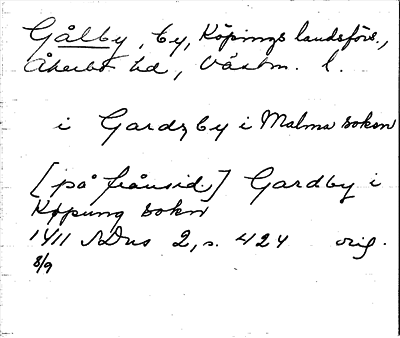 Gålby, by, Köpings landsförs.,
Åkerbo hd, Västm. l.
i Gardzby i Malma sokn
[på frånsid.] Gardby i
Köpung sokn
1411 SDns 2, s. 424 orig.
8/9